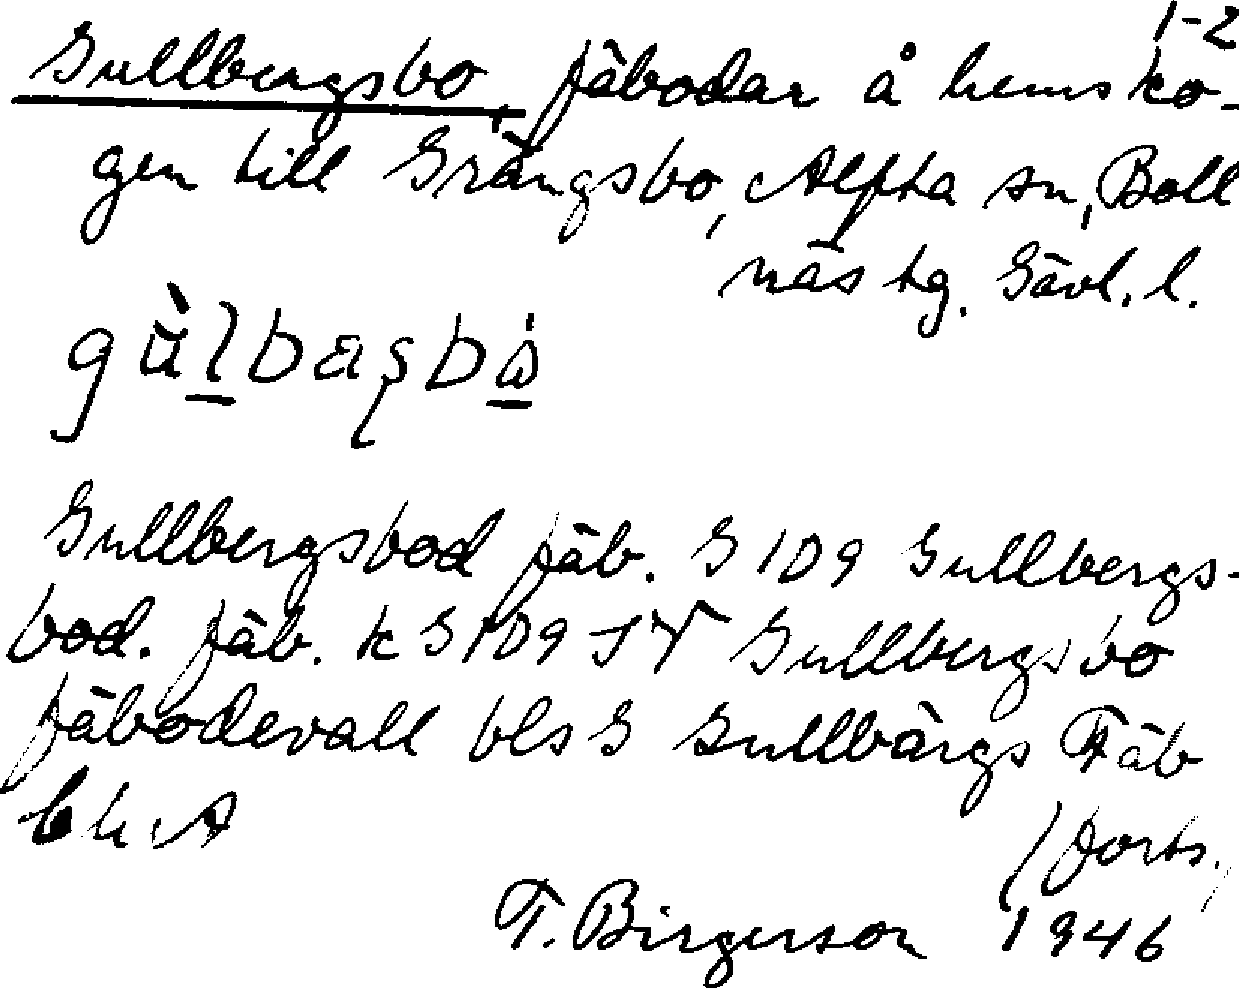 1-2
Gullbergsbo, fäbodar å hemsko-
gen till Grängsbo, Alfta sn, Boll
näs tg. Gävl. l.
Gullbergsbod fäb. G 109 Gullbergs-
bod. fäb. k G 109 Gullbergsbo
fäbodevall bls G Gullbärgs Fäb
(forts.)
T. Birgerson 1946